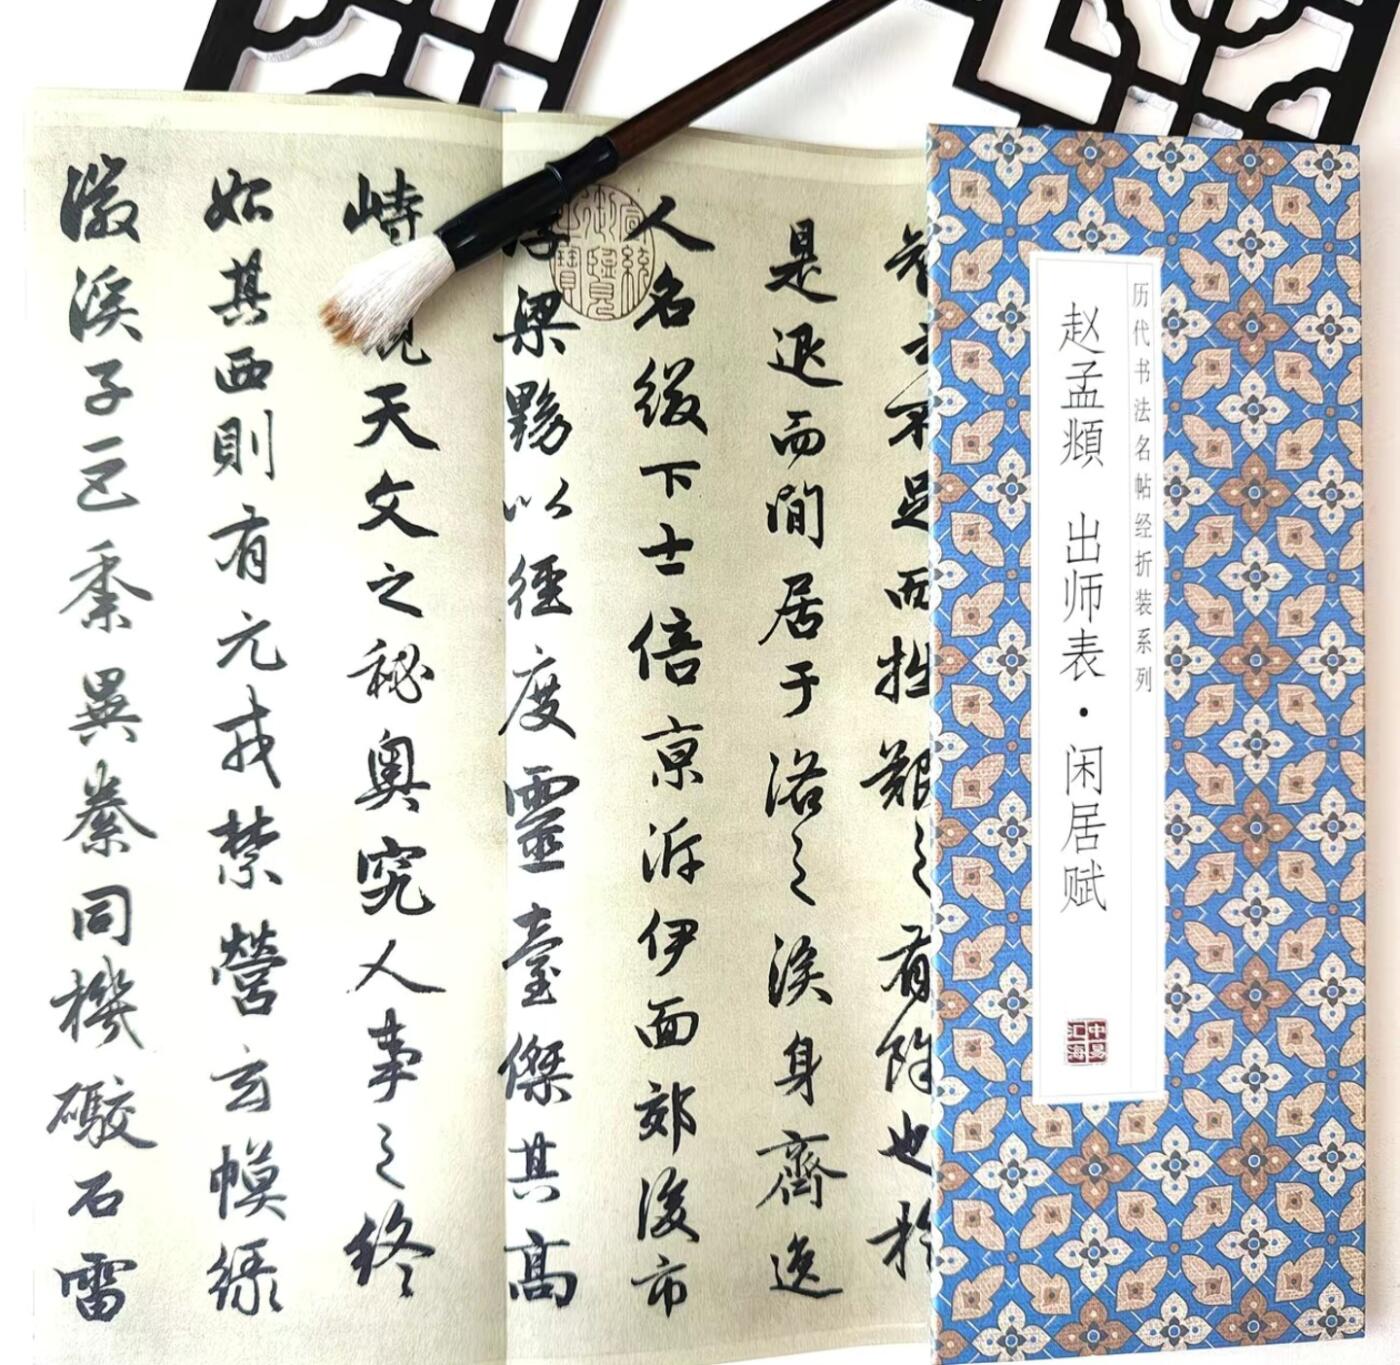 历代书法名帖经折装系列
赵孟頫 出师表·闲居赋
中易汇海
智之不足而拙艱之有餘也於
是退而間居于洛之涘身齊逸
人名綴下士倍京泝伊面郊後市
宣統御覽之寶
浮梁黝以徑度靈臺傑其高
峙天文之秘奥究人事之終
始其西則有元戎禁營玄幙綠
徽溪子巨黍異絭同機礮石雷